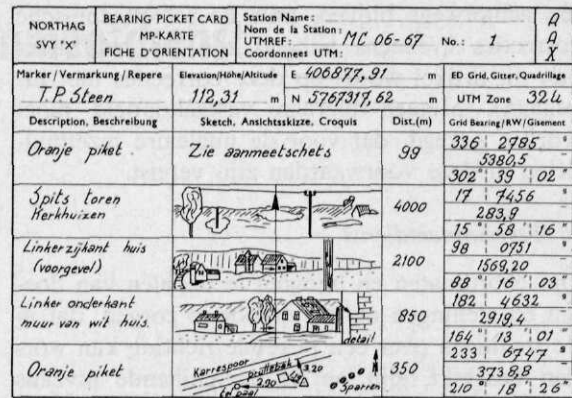 NORTHAG
SVY "X"
BEARING PICKET CARD
MP-KARTE
FICHE D'ORIENTATION
Station Name:
Nom de la Station:
UTMREF: MC 06-67 No.: 1
Coordonnees UTM:
A
A
X
Marker / Vermarkung / Repere
T.P. Steen
Elevation/Höhe/Altitude
112,31 m
E 406877,91 m
N 5767317,62 m
ED Grid, Gitter, Quadrillage
UTM Zone 32U
Description, Beschreibung Sketch, Ansichtsskizze, Croquis Dist.(m) Grid Bearing/RW/Gisement
Oranje piket Zie aanmeetschets 99
336 2785 g
5380,5
302° 39' 02"
Spits toren
Kerkhuizen
4000
17 7456 g
283,9
15° 58' 16"
Linkerzijkant huis
(voorgevel)
2100
98 0751 g
1569,20
88° 16' 03"
Linker onderkant
muur van wit huis.
detail
850
182 4632 g
2919,4
164° 13' 01"
Oranje piket
Karrespoor
3.20
2.90
tel paal
Sparren
350
233 6747 g
3738,8
210° 18' 26"